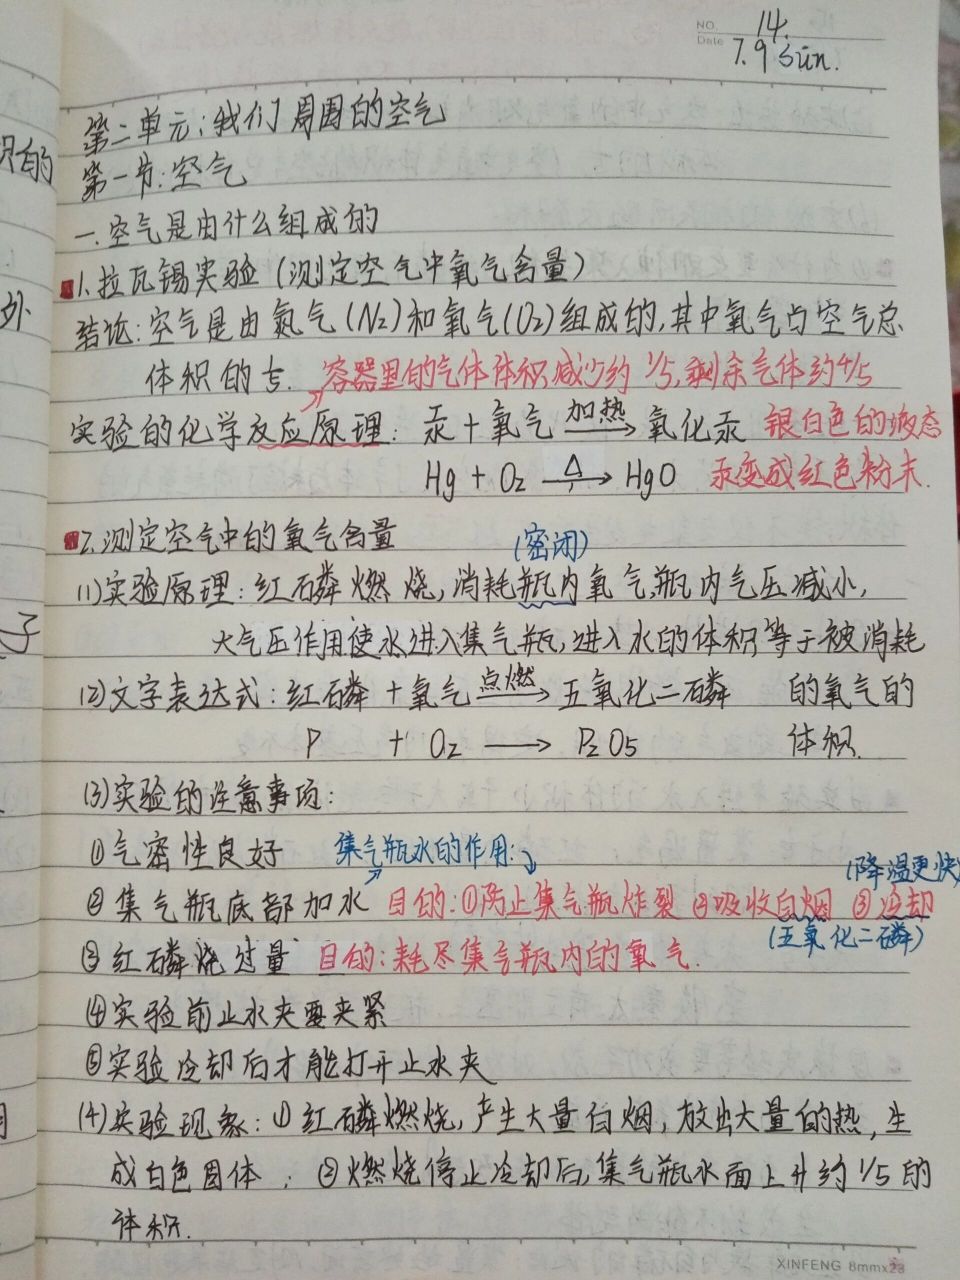 NO. 14.
Date 7.9 Sun.
第二单元:我们周围的空气
第一节:空气
一.空气是由什么组成的
1.拉瓦锡实验(测定空气中氧气含量)
结论:空气是由氮气(N2)和氧气(O2)组成的,其中氧气占空气总
体积的1/5. 容器里的气体体积减少约1/5,剩余气体约4/5
实验的化学反应原理:汞+氧气 加热→ 氧化汞 银白色的液态
Hg + O2 △→ HgO 汞变成红色粉末.
2.测定空气中的氧气含量
(密闭)
(1)实验原理:红磷燃烧,消耗瓶内氧气,瓶内气压减小,
大气压作用使水进入集气瓶,进入水的体积等于被消耗
(2)文字表达式:红磷+氧气 点燃→ 五氧化二磷 的氧气的
P + O2 → P2O5 体积.
(3)实验的注意事项:
①气密性良好 集气瓶水的作用:
(降温更快)
②集气瓶底部加水 目的:①防止集气瓶炸裂 ②吸收白烟 ③冷却
(五氧化二磷)
③红磷烧过量 目的:耗尽集气瓶内的氧气.
④实验前止水夹要夹紧
⑤实验冷却后才能打开止水夹
(4)实验现象:①红磷燃烧,产生大量白烟,放出大量的热,生
成白色固体;②燃烧停止冷却后,集气瓶水面上升约1/5的
体积.
XINFENG 8mmx23
识的
外
子